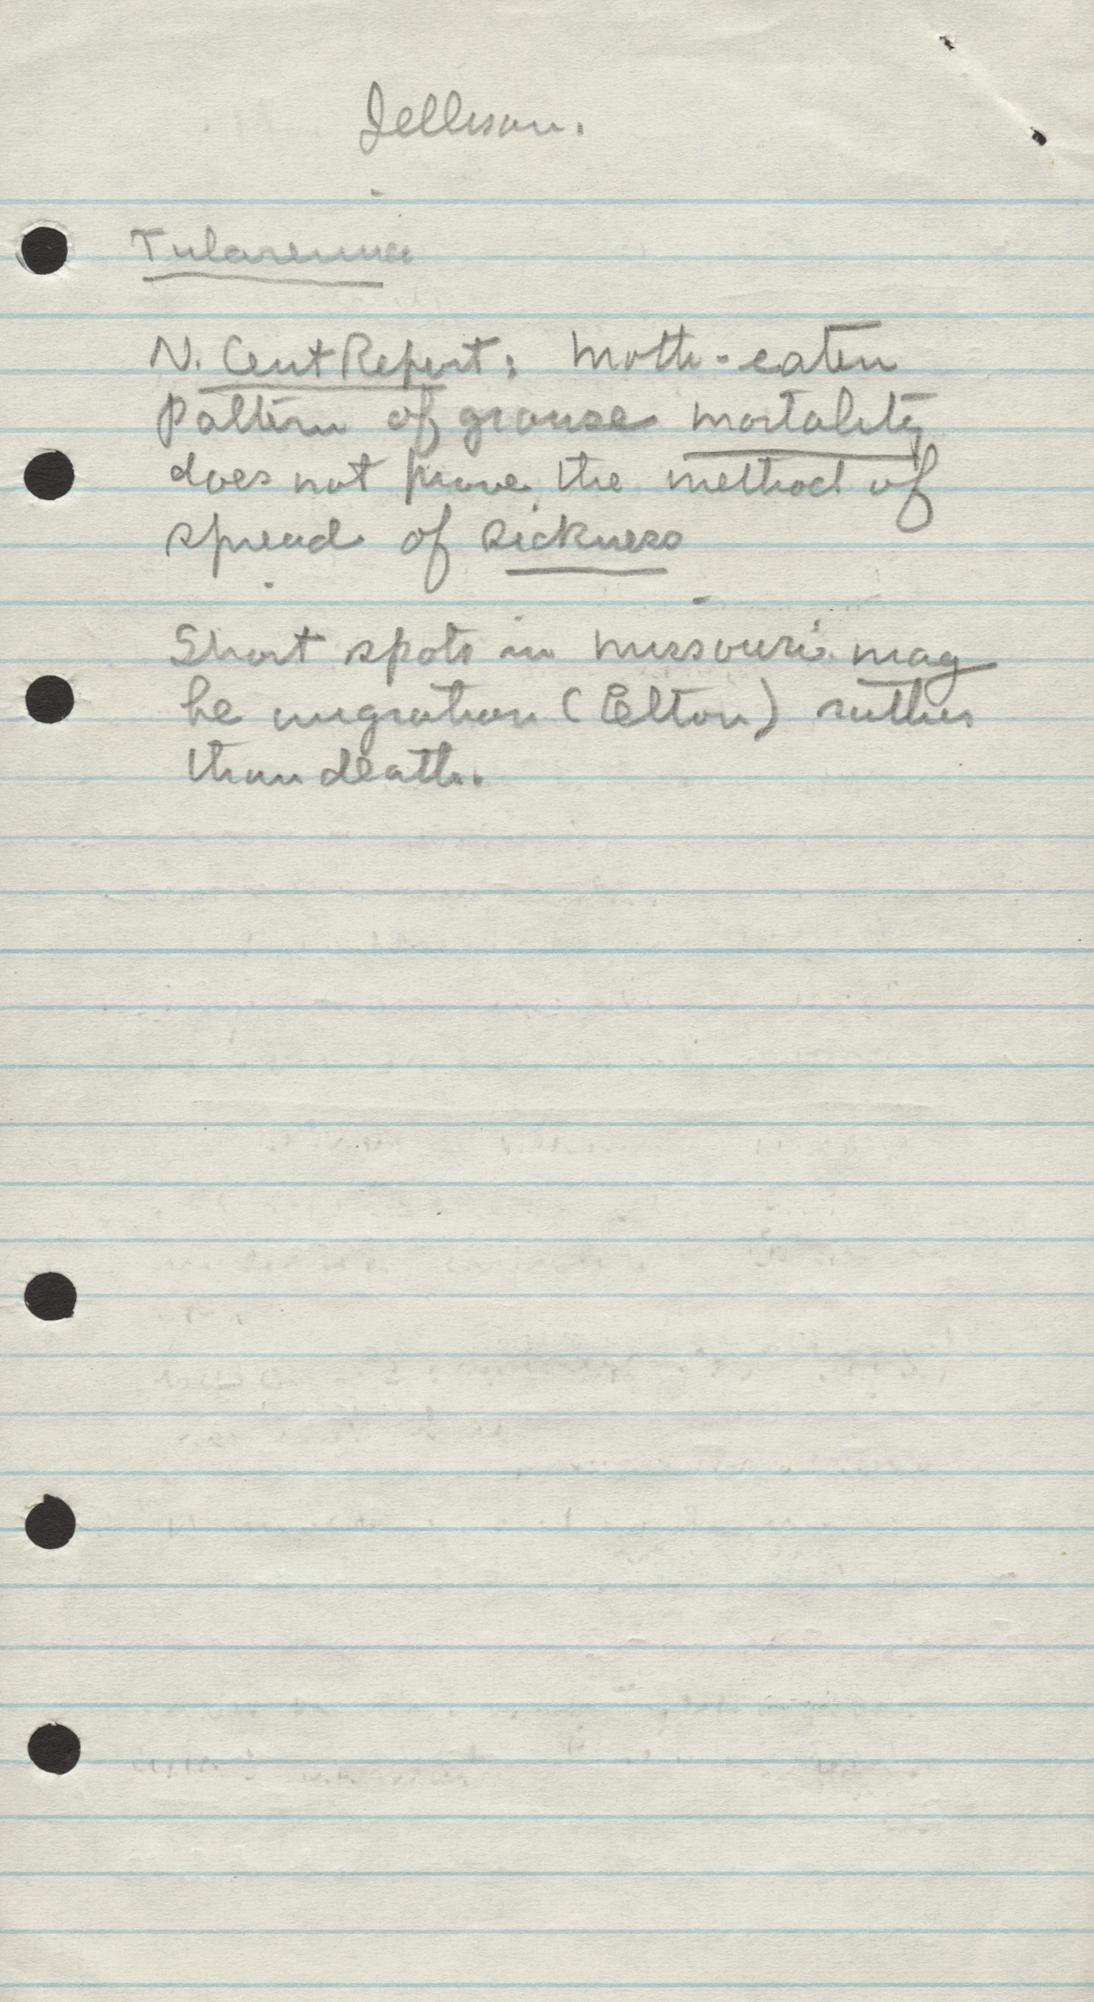 Jellison.
Tularemia
N. Cent Report: Moth-eaten
pattern of grouse mortality
does not prove the method of
spread of sickness
Short spots in Missouri may
be migration (Elton) rather
than death.